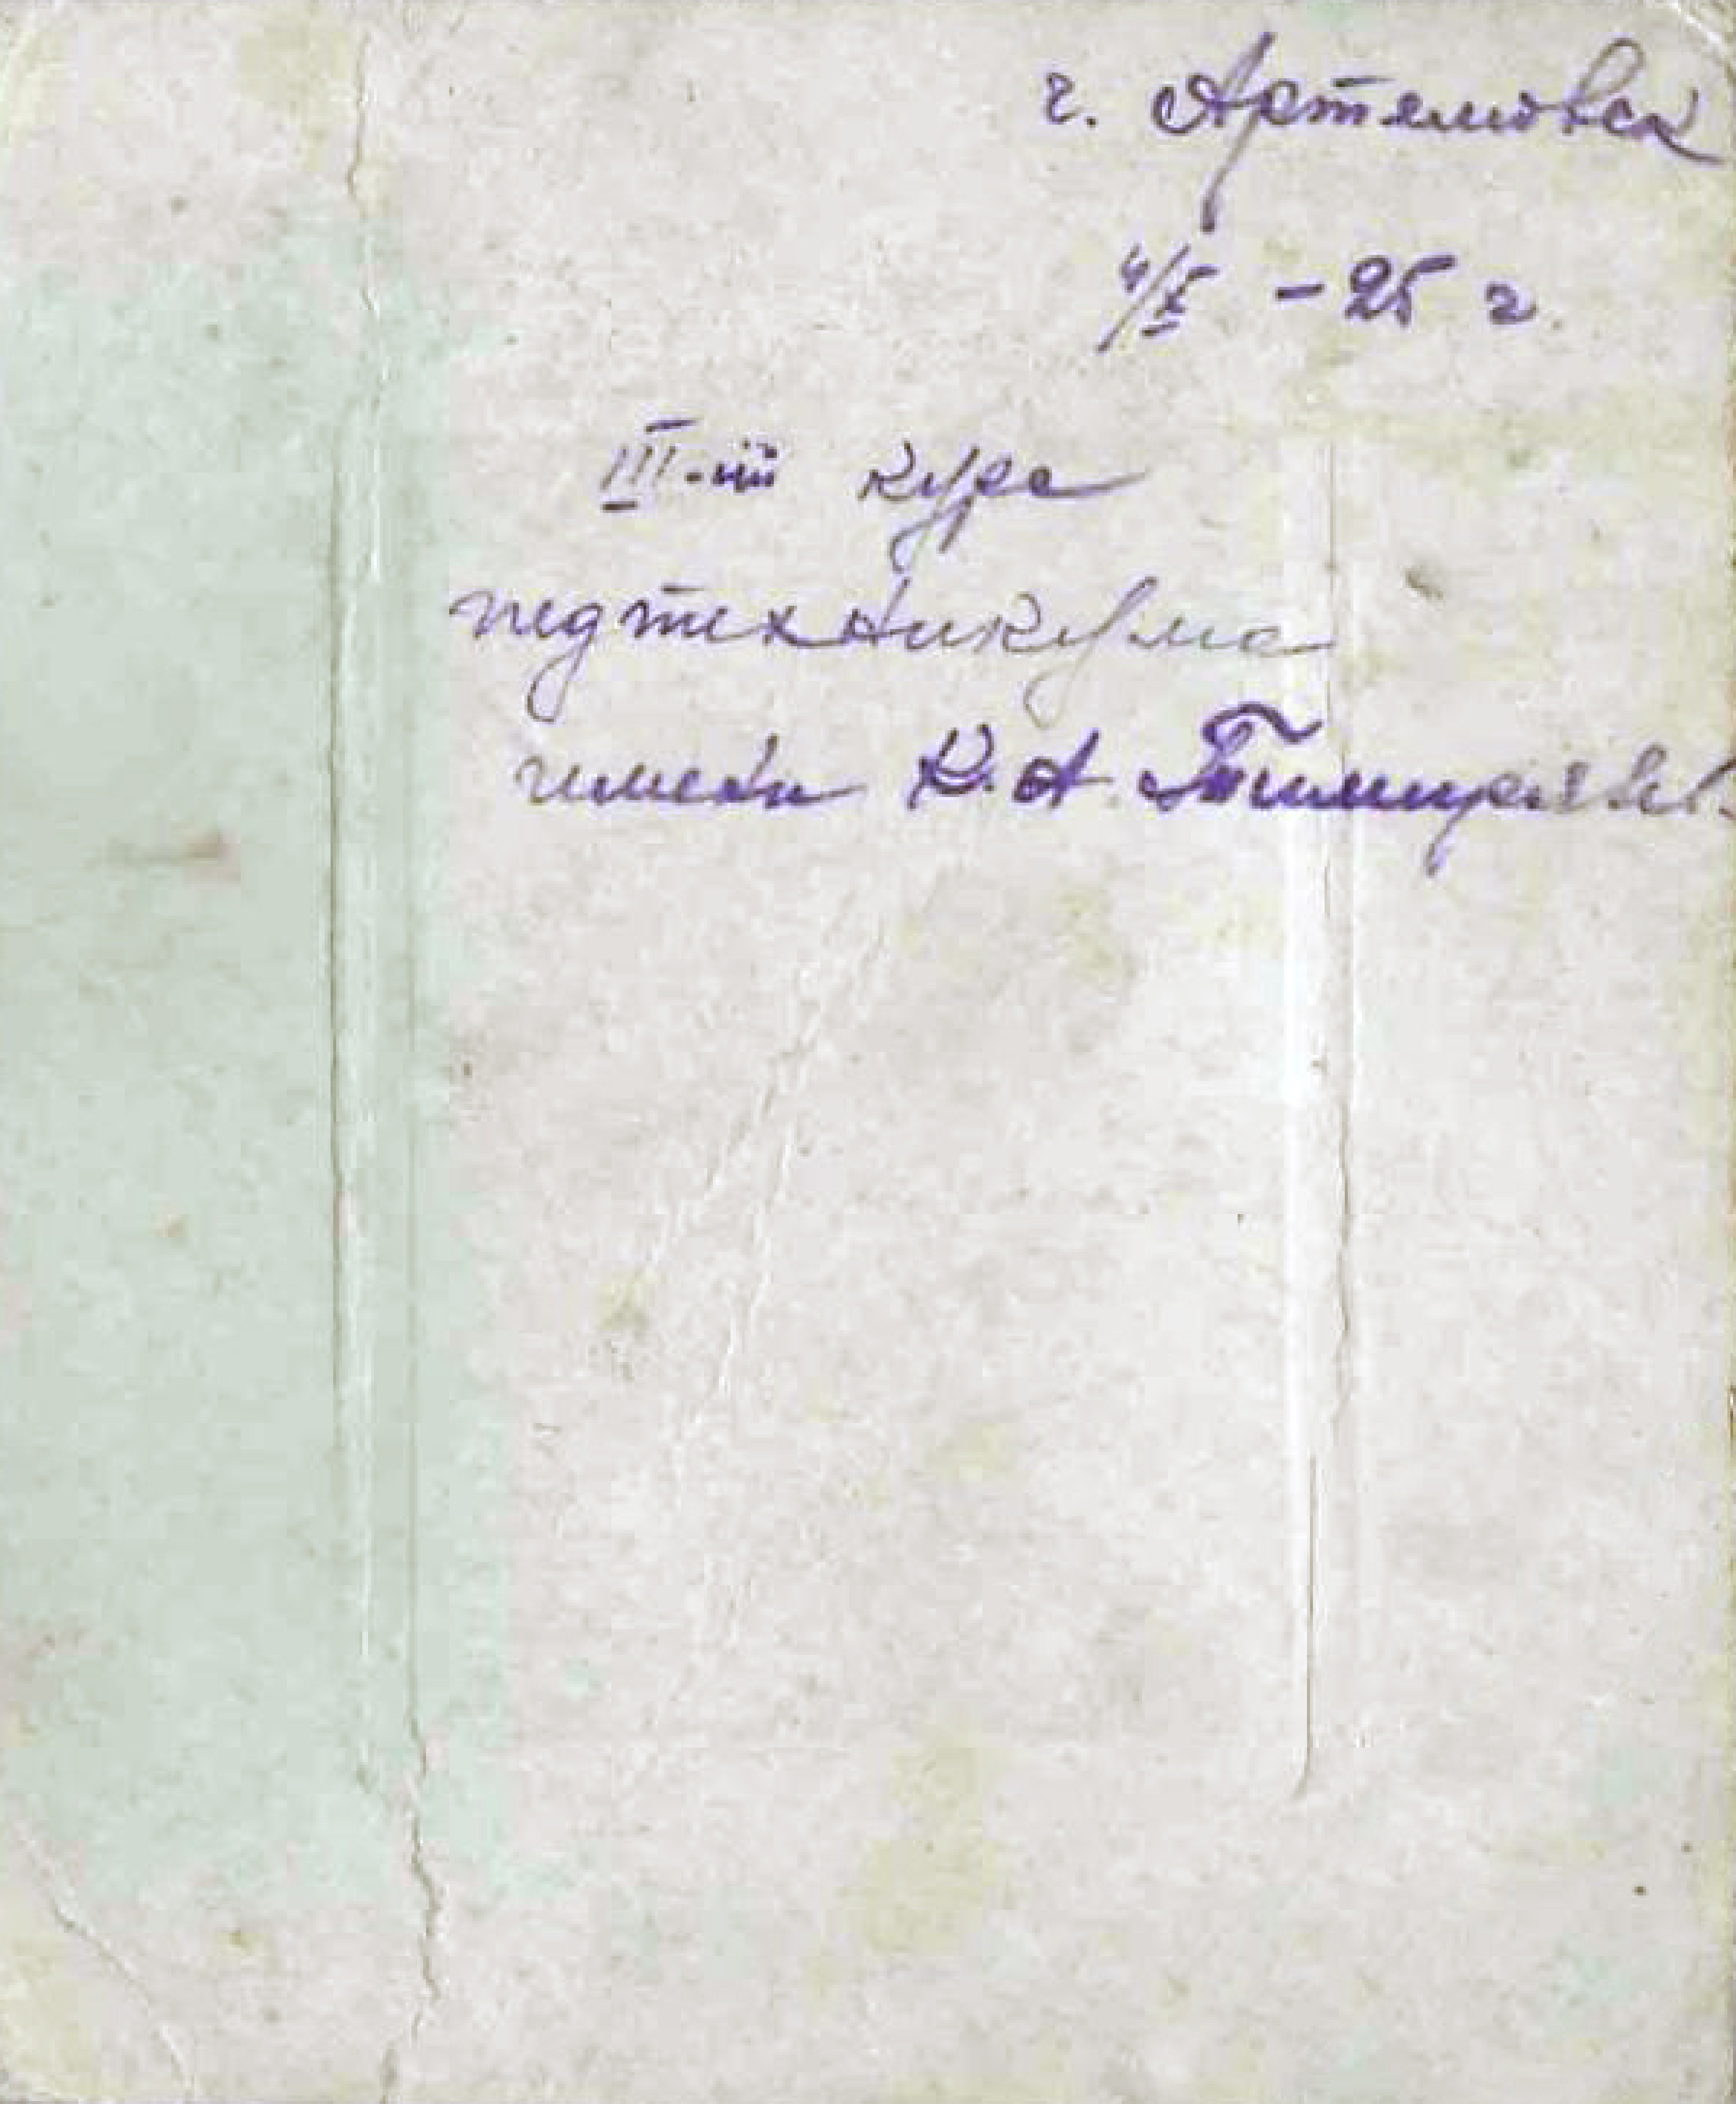 г. Артемовск
4/X - 25 г.
III-ий курс
педтехникума
имени К. А. Тимирязев